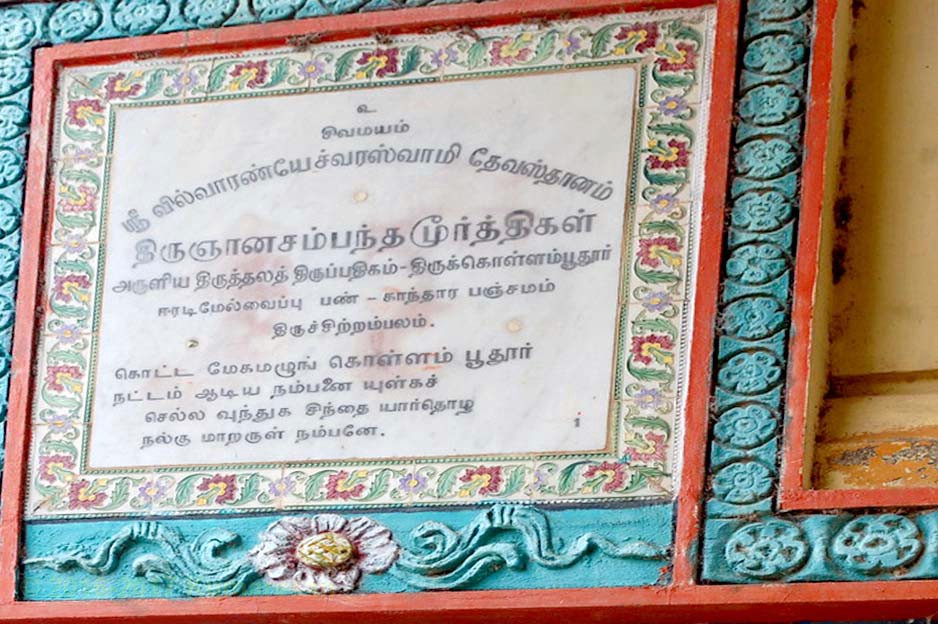 உ
ஶிவமயம்
ஸ்ரீ வில்வாரண்யேச்வரஸ்வாமி தேவஸ்தானம்
திருஞானசம்பந்தமூர்த்திகள்
அருளிய திருத்தலத் திருப்பதிகம்-திருக்கொள்ளம்பூதூர்
ஈரடிமேல்வைப்பு பண் – காந்தார பஞ்சமம்
திருச்சிற்றம்பலம்.
கொட்ட மேகமழுங் கொள்ளம் பூதூர்
நட்டம் ஆடிய நம்பனை யுள்கச்
செல்ல வுந்துக சிந்தை யார்தொழ
நல்கு மாறருள் நம்பனே. 1